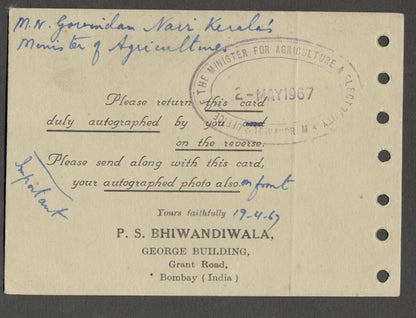 M. N. Govindan Nair Kerala's
Minister of Agriculture
THE MINISTER FOR AGRICULTURE & ELECTRICITY
2-MAY 1967
Please return this card
duly autographed by you and
on the reverse.
Please send along with this card,
your autographed photo also. on front
Important
Yours faithfully 19-4-67
P. S. BHIWANDIWALA,
GEORGE BUILDING,
Grant Road,
Bombay (India)